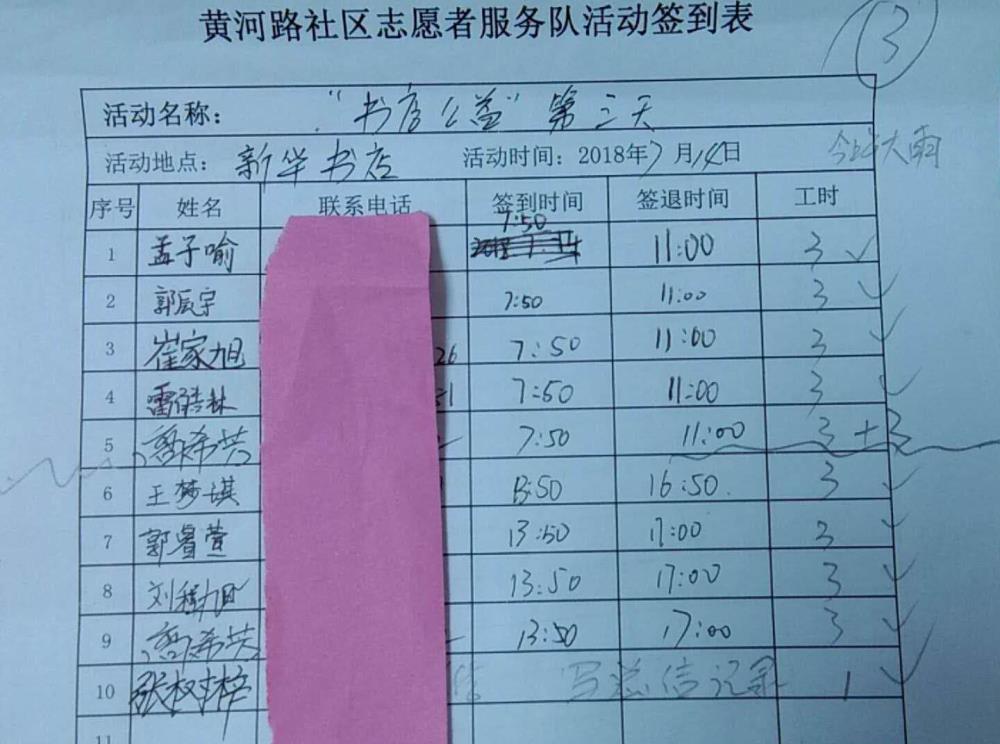 黄河路社区志愿者服务队活动签到表
3
活动名称： "书店公益"第三天
活动地点：新华书店 活动时间：2018年7月14日
大雨
序号 姓名 联系电话 签到时间 签退时间 工时
1 孟子喻 7:50 11:00 3 ✓
2 郭辰宇 7:50 11:00 3 ✓
3 崔家旭 26 7:50 11:00 3 ✓
4 雷皓林 51 7:50 11:00 3 ✓
5 希芸 7:50 11:00 3+3 ✓
6 王梦琪 13:50 16:50 3 ✓
7 郭睿萱 13:50 17:00 3 ✓
8 刘程旭 13:50 17:00 3 ✓
9 希芸 13:50 17:00 3 ✓
10 张 写总信记录 1 ✓
11